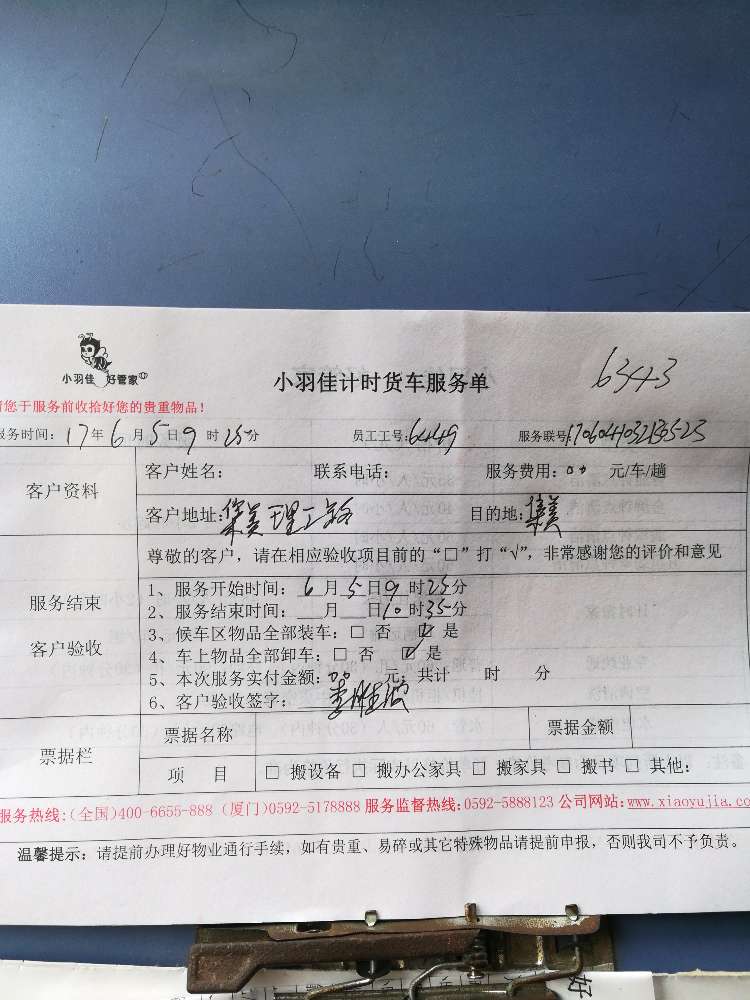 小羽佳 好管家
小羽佳计时货车服务单
6343
您于服务前收拾好您的贵重物品！
服务时间：17年6月5日9时25分 员工工号：6449 服务联号：
客户资料
客户姓名： 联系电话： 服务费用： 元/车/趟
客户地址：集美理工路 目的地：集美
服务结束
客户验收
尊敬的客户，请在相应验收项目前的“□”打“√”，非常感谢您的评价和意见
1、服务开始时间：6月5日9时25分
2、服务结束时间：__月__日10时35分
3、候车区物品全部装车：□ 否 ☑ 是
4、车上物品全部卸车：□ 否 ☑ 是
5、本次服务实付金额： 元；共计 时 分
6、客户验收签字：
票据栏
票据名称 票据金额
项 目 □ 搬设备 □ 搬办公家具 □ 搬家具 □ 搬书 □ 其他：
服务热线：(全国)400-6655-888 (厦门)0592-5178888 服务监督热线：0592-5888123 公司网站：www.xiaoyujia.co
温馨提示：请提前办理好物业通行手续，如有贵重、易碎或其它特殊物品请提前申报，否则我司不予负责。
好